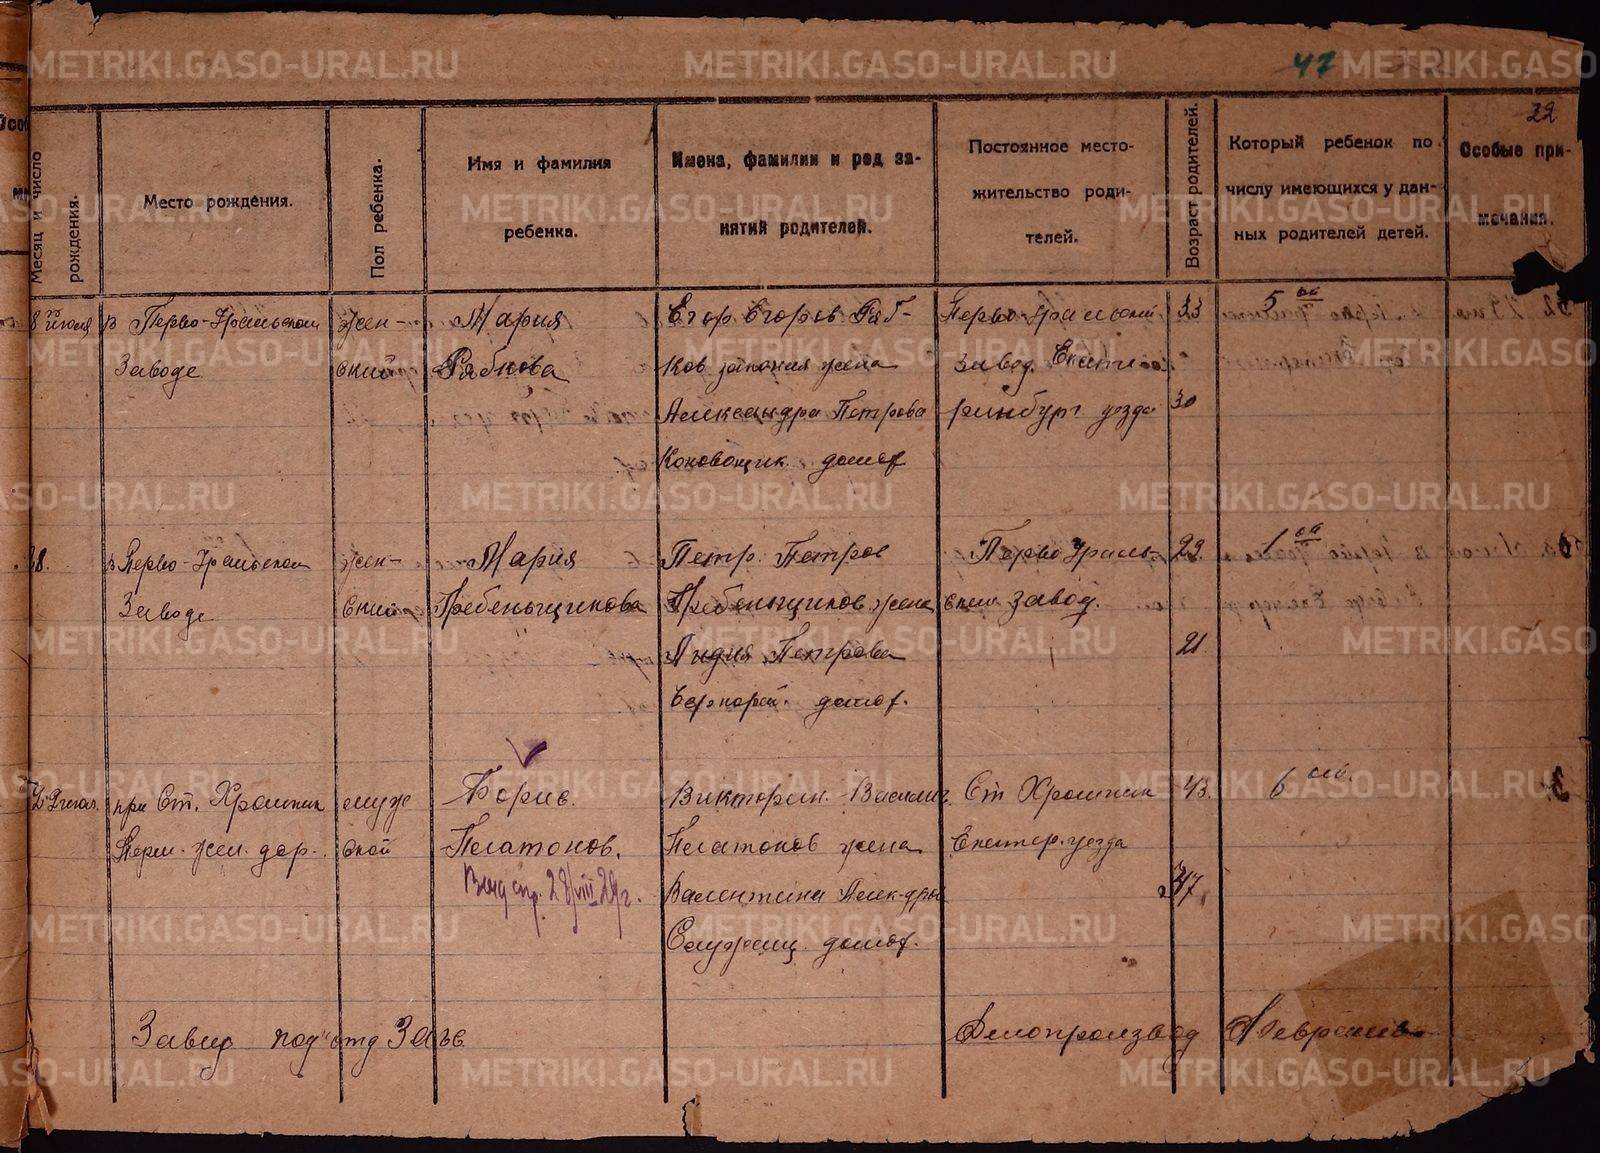 47
22
Месяц и число рождения.
Место рождения.
Пол ребенка.
Имя и фамилия
ребенка.
Имена, фамилии и род за-
нятий родителей.
Постоянное место-
жительство роди-
телей.
Возраст родителей.
Который ребенок по
числу имеющихся у дан-
ных родителей детей.
Особые при-
мечания.
в Перво-Уральском
Заводе
жен-
ский
Мария
Рябкова
Егор Егоров Ряб-
ков законная жена
Александра Петрова
домох
Перво-Уральский
завод. Екате
ринбург уезда
33
30
5 ый
28.
в Перво-Уральском
Заводе
жен-
ский
Мария
Гребеньщикова
Петр. Петров
Гребеньщиков жена
Лидия Петрова
домох.
Перво Ураль-
ский завод.
22
21
1 ый
при Ст. Хромпик
Перм. жел. дор.
мужс
ской
Борис.
Платонов.
Выд спр. 28/VIII 29г.
Викторин. Василич.
Платонов жена
Валентина Алек-дров
Служащ. домох.
Ст Хромпик
Екатер. уезда
43.
47
6 ой.
Завед под отд Загс
Делопроизвод
METRIKI.GASO-URAL.RU